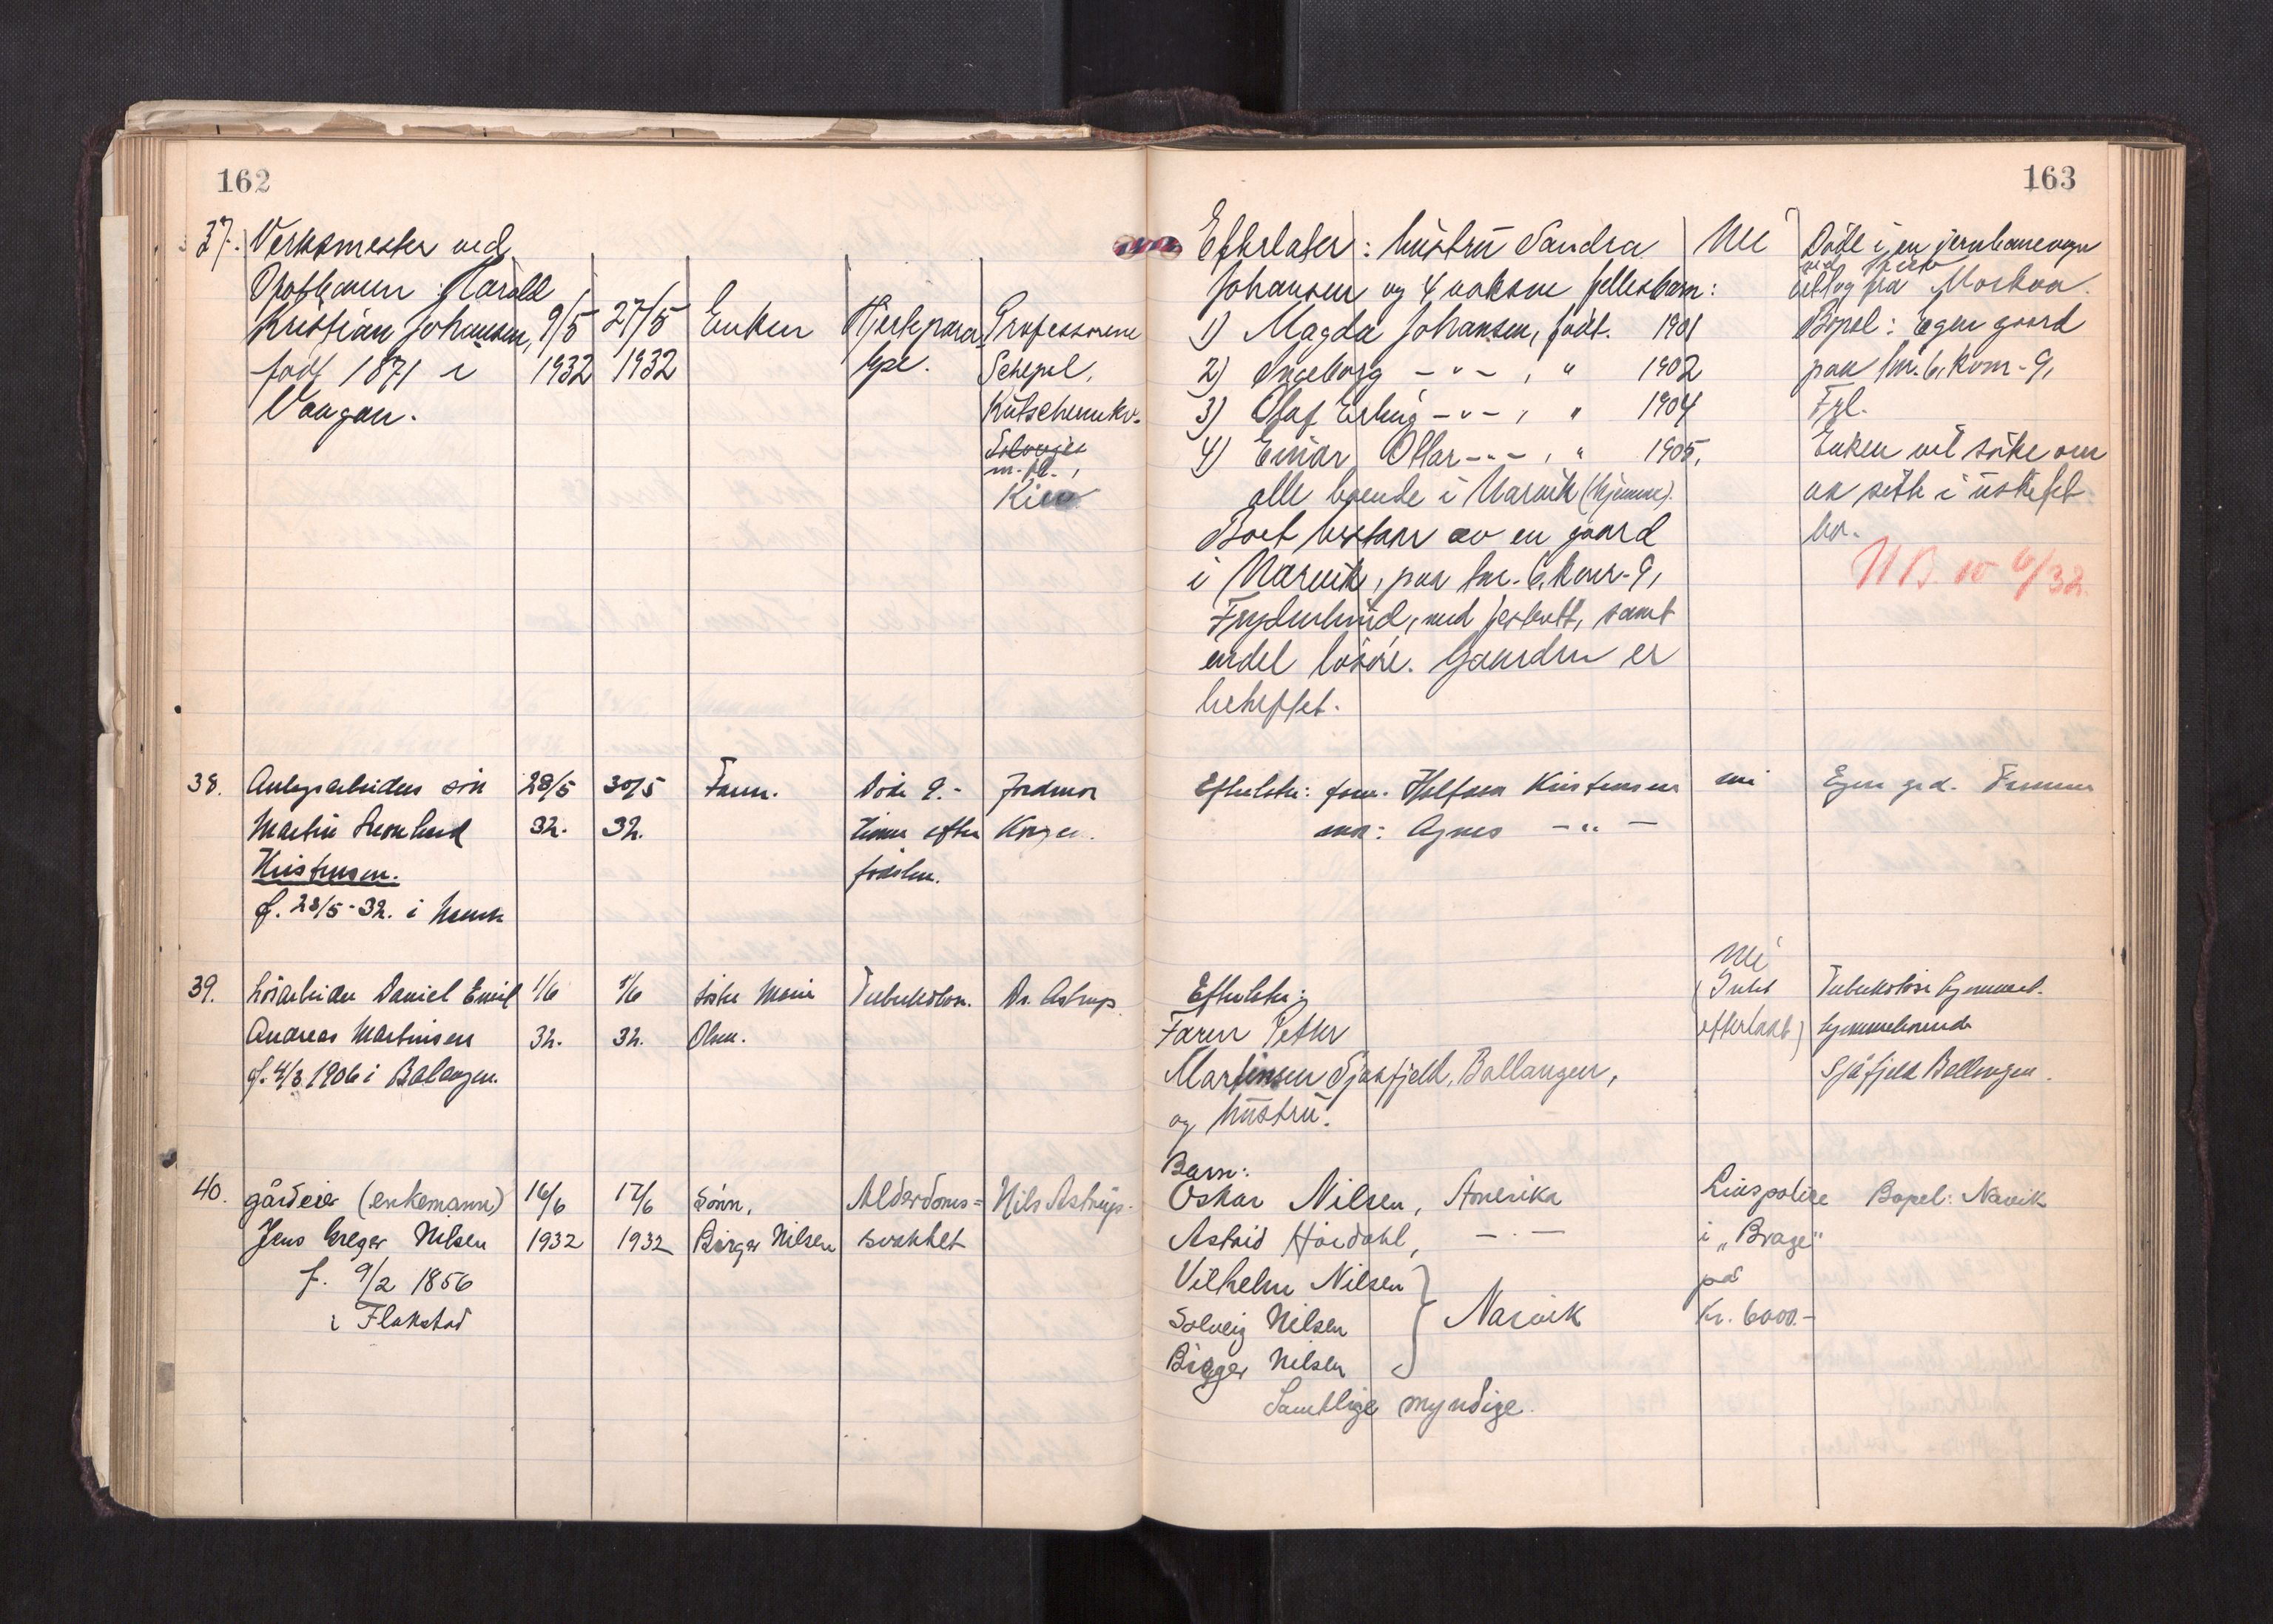 162
37. Verksmester ved
Ofotbanen Harald
Kristian Johansen, 9/5 27/5 Enken Hjertepara- Professorene
født 1871 i 1932 1932 lyse. Schepel,
Vaagan. Kutschernko-
m. fl.,
Kiew
38. Anlegsarbeiders søn 28/5 30/5 Faren. Døde 9.- Jordmor
Martin Leonhard 32. 32. timer efter Korgen.
Kristensen. fødselen.
f. 28/5-32. i Narvik
39. Løsarbeider Daniel Emil 1/6 1/6 søster Marie Tuberkolose. Dr. Astrup.
Andreas Martinsen 32. 32. Olsen.
f. 4/3 1906 i Balangen.
40. gårdeier (enkemann) 16/6 17/6 sønn, Alderdoms= Nils Astrup.
Jens Greger Nilsen 1932 1932 Birger Nilsen svakhet
f. 9/2 1856
i Flakstad
163
Efterlater: hustru Sandra Nei Døde i en jernbanevogn
Johansen og 4 voksne fellesbarn: ved Kiew
utlog fra Moskva.
1) Magda Johansen, født. 1901 Bopæl: Egen gaard
2) Ingeborg -"- , " 1902 paa bnr. 6, kvm. 9,
3) Olaf Erling -"- , " 1904 Frl.
4) Einar Ottar -"- , " 1905, Enken vil søke om
alle boende i Narvik (hjemme). aa sitte i uskiftet
Boet bestaar av en gaard bo.
i Narvik, paa bnr. 6, kvm. 9, NB 10 6/32.
Frydenlund, med festerett, samt
endel løsøre. Gaarden er
beheftet.
Efterlater: far. Halfdan Kristensen nei Egen grd.
mor: Agnes -"-
Nei
Efterlater: (Intet Tuberkolose hjemmet.
Faren Petter efterlatt) hjemmehørende
Martinsen Sjåfjeld, Ballangen, Sjåfjeld Ballangen.
og hustru.
Barn:
Oskar Nilsen, Amerika Livspolise Bopel: Narvik
Astrid Hårdahl, -"- i "Brage"
Vilhelm Nilsen på
Solveig Nilsen } Narvik Kr. 6000.-
Birger Nilsen
Samtlige myndige.